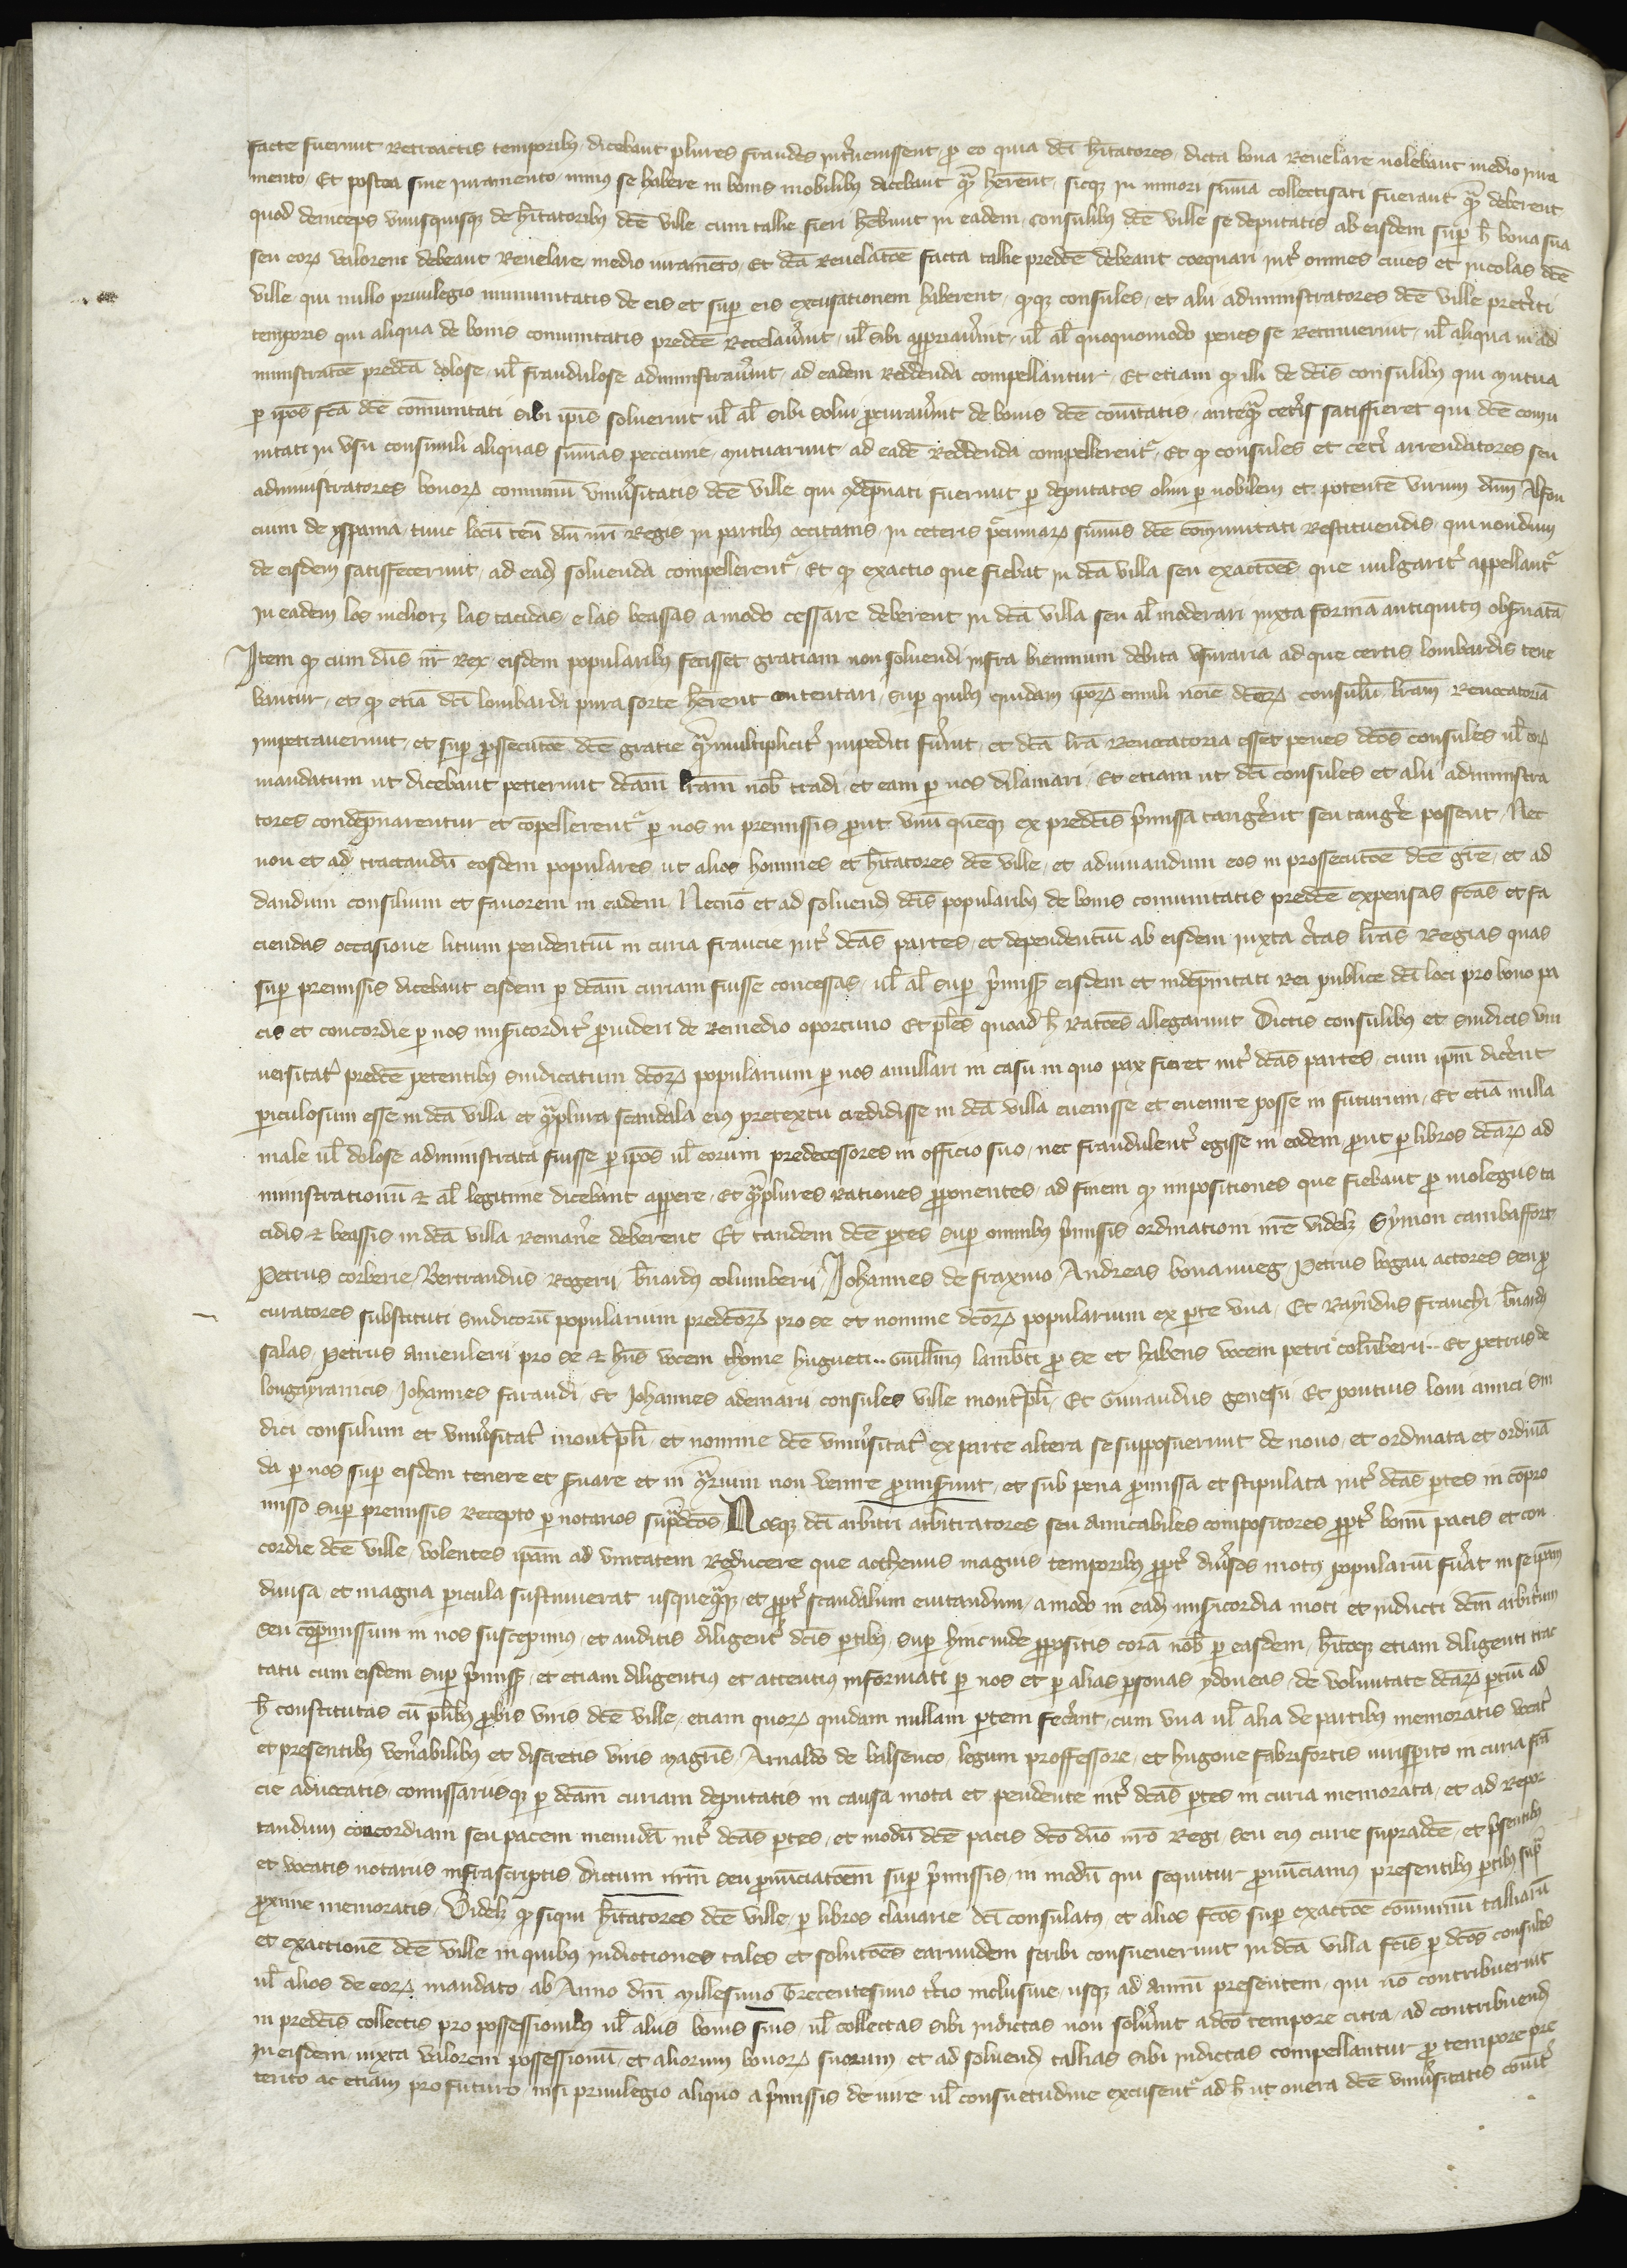 facte fuerunt Retroactis temporibus dicebant plures fraudes intervenissent, pro eo quia dc̄i hītatores dicta bona Revelare nolebant medio iura
mento, Et postea sine iuramento minus se habere in bonis mobilibus dicebant quam herent, sicque in minori summa collectisati fuerant quam deberent
quod deinceps unusquisque de hītatoribus dc̄e ville cum tallie fieri hebunt in eadem, consulibus dc̄e ville se deputatis ab eisdem super h̄ bona sua
seu eorum valorem debeant Revelare medio iuramento, Et dc̄a Revelatōe facta tallie predc̄e debeant coequari inter omnes cives et incolas dc̄e
ville qui nullo privilegio immunitatis de eis et super eis excusationem haberent, quodque consules et alii administratores dc̄e ville preteriti
temporis qui aliqua de bonis comunitatis predc̄e Recelaverunt, vel sibi appropriaverunt, vel al̄ quoquomodo penes se Retinuerunt, vel aliqua in ad
ministratōe predc̄a dolose vel fraudulose administraverunt, ad eadem Reddenda compellantur, Et etiam quod illi de dc̄is consulibus qui mutua
per ip̄os fc̄a dc̄e comunitati sibi ip̄is solverunt vel al̄ sibi solvi procuraverunt de bonis dc̄e comūtatis, antequam ceteris satisfieret qui dc̄e comu
nitati in usu consimili aliquas summas peccunie mutuarunt, ad eadē Reddenda compellerentur, Et quod consules et ceteri arrendatores seu
administratores bonorum communium universitatis dc̄e ville qui condēpnati fuerunt per deputatos olim per nobilem et potentem virum dn̄m Alfon
cium de yspania, tunc locum teñ dn̄i nr̄i Regis in partibus occitanis in ceteris peccuniarum summis dc̄e comunitati Restituendis, qui nondum
de eisdem satisfecerunt, ad eadem solvenda compellerentur, Et quod exactio que fiebat in dc̄a villa seu exactōes que vulgariter appellantur
in eadem los meliorz las tacidas e las beassas amodo cessare deberent in dc̄a villa seu al̄ moderari iuxta formā antiquitus observatā
Item quod cum dn̄s nr̄ Rex eisdem popularibus fecisset gratiam non solvendi infra biennium debita usuraria ad que certis lombardis tene
bantur, et quod etiā dc̄i lombardi pura sorte herent contentari, super quibus quidam ip̄orum emuli noīe dc̄orum consulum lr̄am Revocatoriā
impetraverunt, et super prossecutōe dc̄e gratie quammultipliciter impediti fuerunt, et dc̄a lr̄a Revocatoria esset penes dc̄os consules vel eorum
mandatum ut dicebant petierunt dc̄am lr̄am nobis tradi et eam per nos dilaniari, Et etiam ut dc̄i consules et alii administra
tores condēpnarentur et compellerentur per nos in premissis prout unum quemque ex predc̄is premissa tangerent seu tangere possent, Nec
non et ad tractandum eosdem populares ut alios homines et hītatores dc̄e ville, et adiuvandum eos in prossecutōe dc̄e grē, et ad
dandum consilium et favorem in eadem, Necnō et ad solvend̄ dc̄is popularibus de bonis comunitatis predc̄e expensas fc̄as et fa
ciendas occasione litium pendentium in curia francie inter dc̄as partes, et dependentium ab eisdem, iuxta certas lr̄as Regias quas
super premissis dicebant eisdem per dc̄am curiam fuisse concessas, vel al̄ super premissis eisdem et indēpnitati Rei publice dc̄i loci pro bono pa
cis et concordie per nos misericorditer provideri de Remedio oportuno Et plures quoad h̄ Ratōes allegarunt Dictis consulibus et sindicis uni
versitatis predc̄e petentibus sindicatum dc̄orum popularium per nos anullari in casu in quo pax fieret inter dc̄as partes, cum ip̄m dicerent
periculosum esse in dc̄a villa et quamplura scandala eius pretextu credidisse in dc̄a villa evenisse et evenire posse in futurum, Et etiā nulla
male vel dolose administrata fuisse per ip̄os vel eorum predecessores in officio suo, nec fraudulenter egisse in eodem, prout per libros dc̄arum ad
ministrationum & al̄ legitime dicebant apparere, Et quamplures rationes proponentes ad finem quod impositiones que fiebant pro molegiis ta
cidis & beassis in dc̄a villa Remanere deberent Et tandem dc̄e partes super omnibus premissis ordinationi nr̄e videlicet Symon cambaffort
Petrus corberie, Bertrandus Rogerii, bernardus columberii, Johannes de fraxino, Andreas bonanueg, Petrus bogau, actores seu pro
curatores substituti sindicorum popularium predc̄orum pro se et nomine dc̄orum popularium ex parte una, Et Raymundus franchi, bernardus
salas, Petrus amenlerii pro se & hn̄s vocem thome hugueti .. Guillmus lamberti pro se et habens vocem petri columberii .. Et petrus de
longayranicis, Johannes faraudi Et Johannes ademarii consules ville montispli, Et Guiraudus genesii Et pontius lovi amici sin
dici consulum et universitatis montispli, et nomine dc̄e universitatis ex parte altera se supposuerunt de novo, et ordinata et ordinā
da per nos super eisdem tenere et servare et in contrarium non venire promiserunt, et sub pena promissa et stipulata inter dc̄as partes in compro
misso super premissis Recepto per notarios supradc̄os Nosque dc̄i arbitri arbitratores seu amicabiles compositores propter bonum pacis et con
cordie dc̄e ville, volentes ip̄am ad unitatem Reducere que acthenus magnis temporibus propter diversos motus popularium fuerat in se ip̄am
divisa, et magna pericula sustinuerat usquequaque, et propter scandalum evitandum, amodo in eadem misericordia moti et inducti dc̄m arbitrium
seu compromissum in nos suscepimus, et auditis diligenter dc̄is partibus super hincinde propositis corā nobis per easdem, hītoque etiam diligenti trac
tatu cum eisdem super premissis, et etiam diligentius et attentius informati per nos et per alias personas ydoneas, de voluntate dc̄arum partium ad
h̄ constitutas cum pluribus probis viris dc̄e ville, etiam quorum quidam nullam partem fecerant, cum una vel alia de partibus memoratis, vocatis
et presentibus venerabilibus et discretis viris magistris Arnaldo de balsenco, legum proffessore, et hugone fabrifortis iurisperito in curia fran
cie advocatis, comissariisque per dc̄am curiam deputatis in causa mota et pendente inter dc̄as partes in curia memorata, et ad Repor
tandum concordiam seu pacem ineundā inter dc̄as partes, et modum dc̄e pacis dc̄o dn̄o nr̄o Regi, seu eius curie supradc̄e, et presentibus
et vocatis notariis infrascriptis dictum nr̄m seu pronunciatōem super premissis in modum qui sequitur pronunciamus presentibus partibus supra
proxime memoratis, Videlicet quod siqui hītatores dc̄e ville, per libros clavarie dc̄i consulatus, et alios fc̄os super exactōe communium talliarum
et exactionē dc̄e ville in quibus indictiones tales et solutōes earundem scribi consueverunt in dc̄a villa fc̄is per dc̄os consules
vel alios de eorum mandato ab Anno dn̄i Millesimo Trecentesimo tercio inclusive, usque ad annum presentem, qui nō contribuerunt
in predc̄is collectis pro possessionibus vel aliis bonis suis, vel collectas sibi indictas non solverunt a dc̄o tempore citra, ad contribuend̄
in eisdem, iuxta valorem possessionum, et aliorum bonorum suorum, et ad solvend̄ tallias sibi indictas compellantur pro tempore pre
terito ac etiam pro futuro nisi privilegio aliquo a premissis de iure vel consuetudine excusentur ad h̄ ut onera dc̄e universitatis comuniter